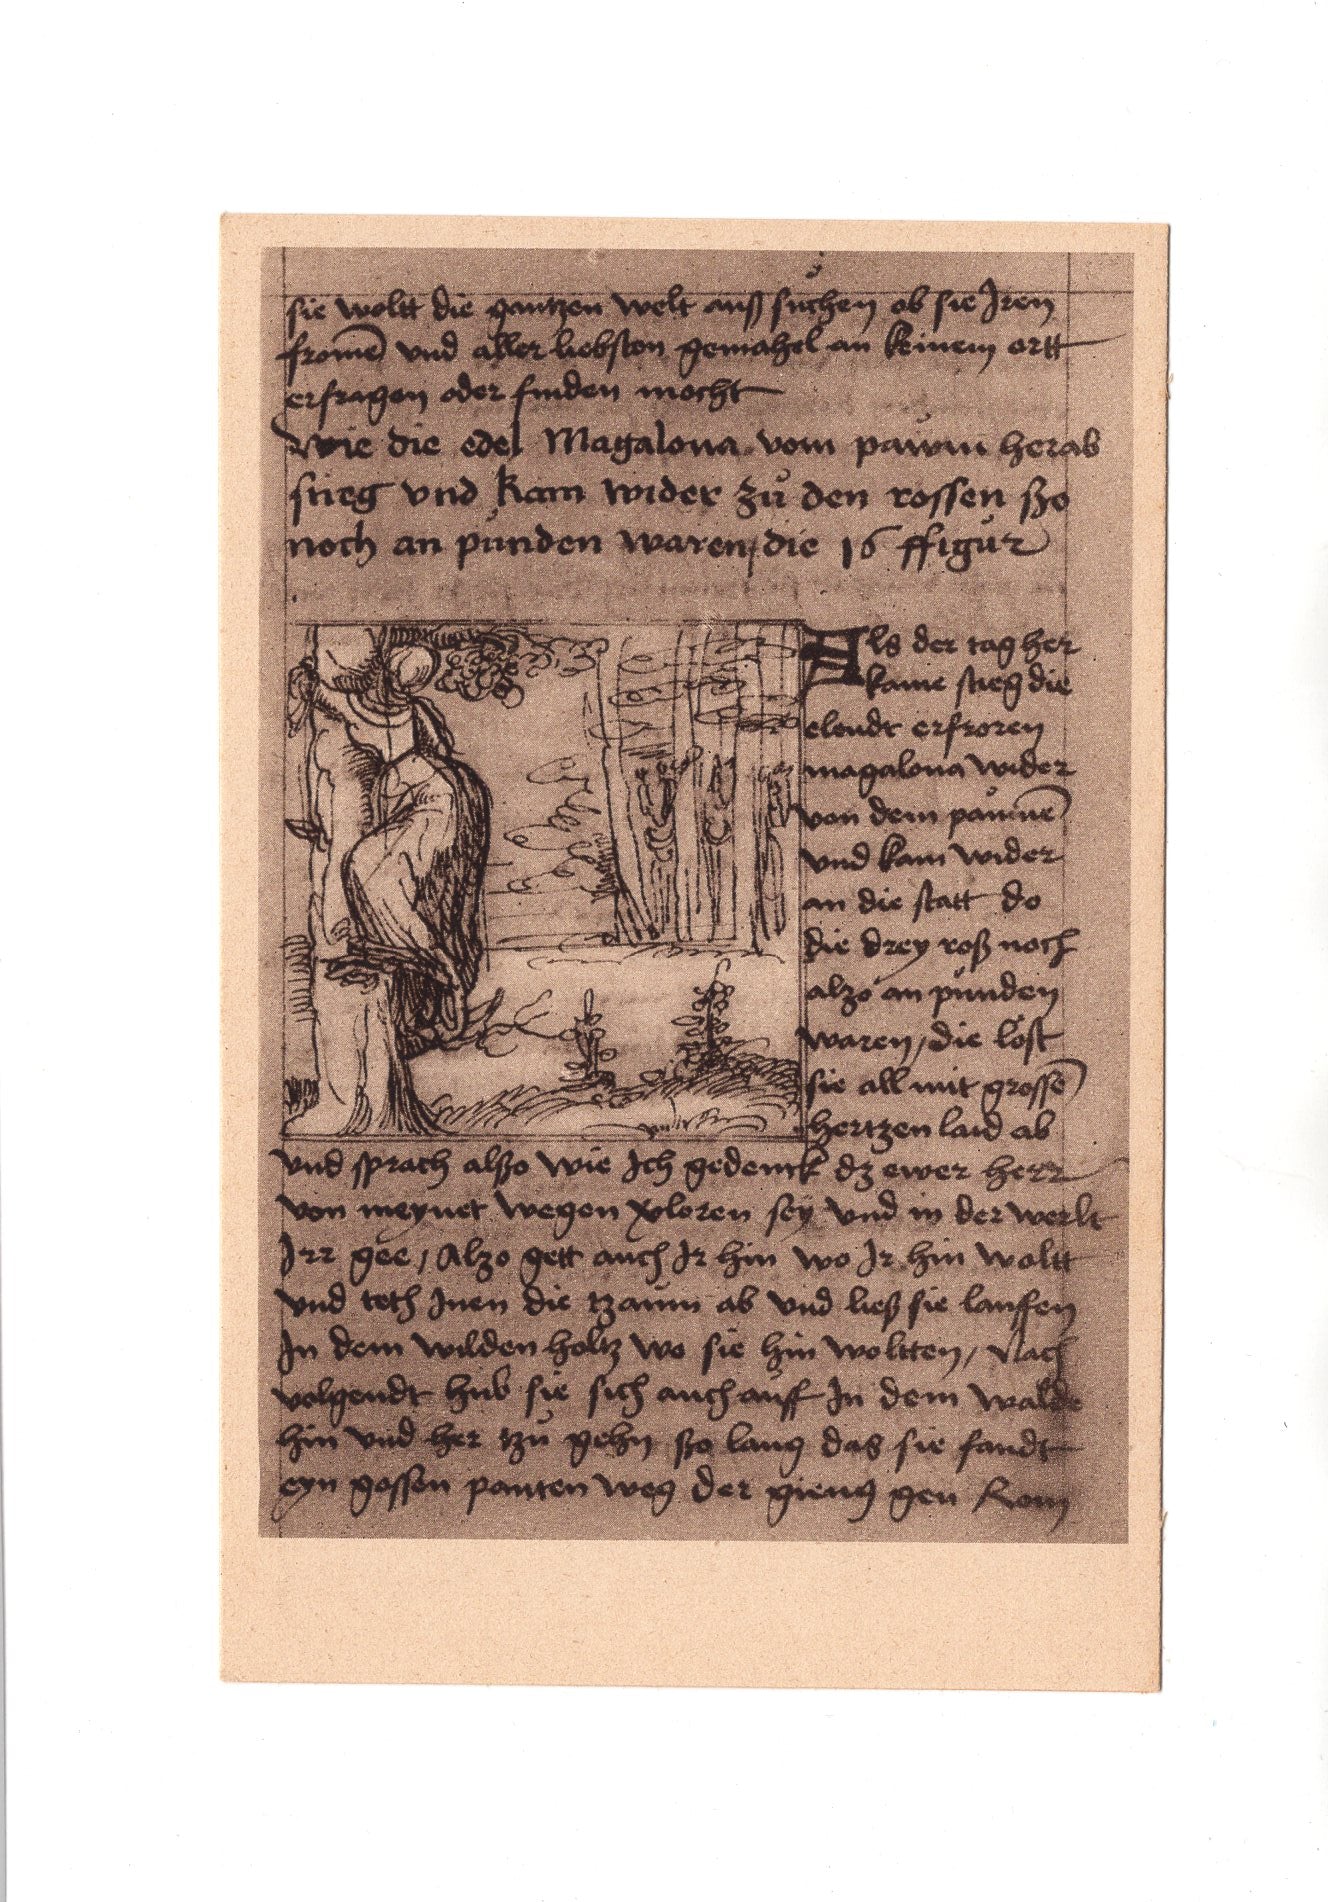 sie woltt die gantzen welt auß suchen ob sie Iren
from̄e vnd aller liebsten gemahel an keinem ortt
erfragen oder finden mocht
Wie die edel Magalona vom pawm herab
stieg vnd kam wider zů den rossen ßo
noch an punden waren / die 16 ffigur
Als der tag her
kame stieg die
elendt erfroren
magalona wider
von dem paum̄e
vnd kam wider
an die statt do
die drey roß noch
alßo an punden
waren / die löst
sie all mit grossē
hertzen laid ab
vnd sprach alßo wie Ich gedenck dz ewer herr
von meynet wegen vloren sey vnd in der werlt
Irr gee / Alzo gett auch Ir hin wo Ir hin woltt
vnd teth Inen die tzaum ab vnd ließ sie lauffen
In dem wilden holtz wo sie hin woltten / Nach
volgendt hub sie sich auch auff In dem walde
hin vnd her tzu gehn ßo lang das sie fandt
eyn gossen panten weg der gieng gen Rom